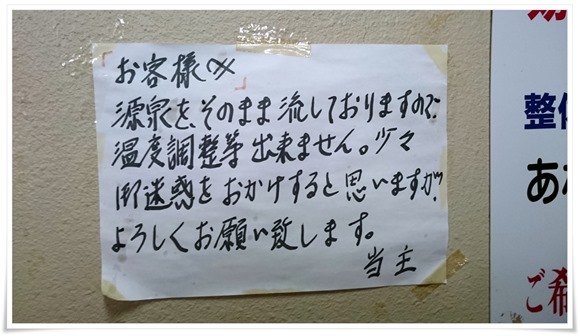 お客様へ
源泉をそのまま流しておりますので、
温度調整等出来ません。少々
御迷惑をおかけすると思いますが
よろしくお願い致します。
当主
整
あ
ご希